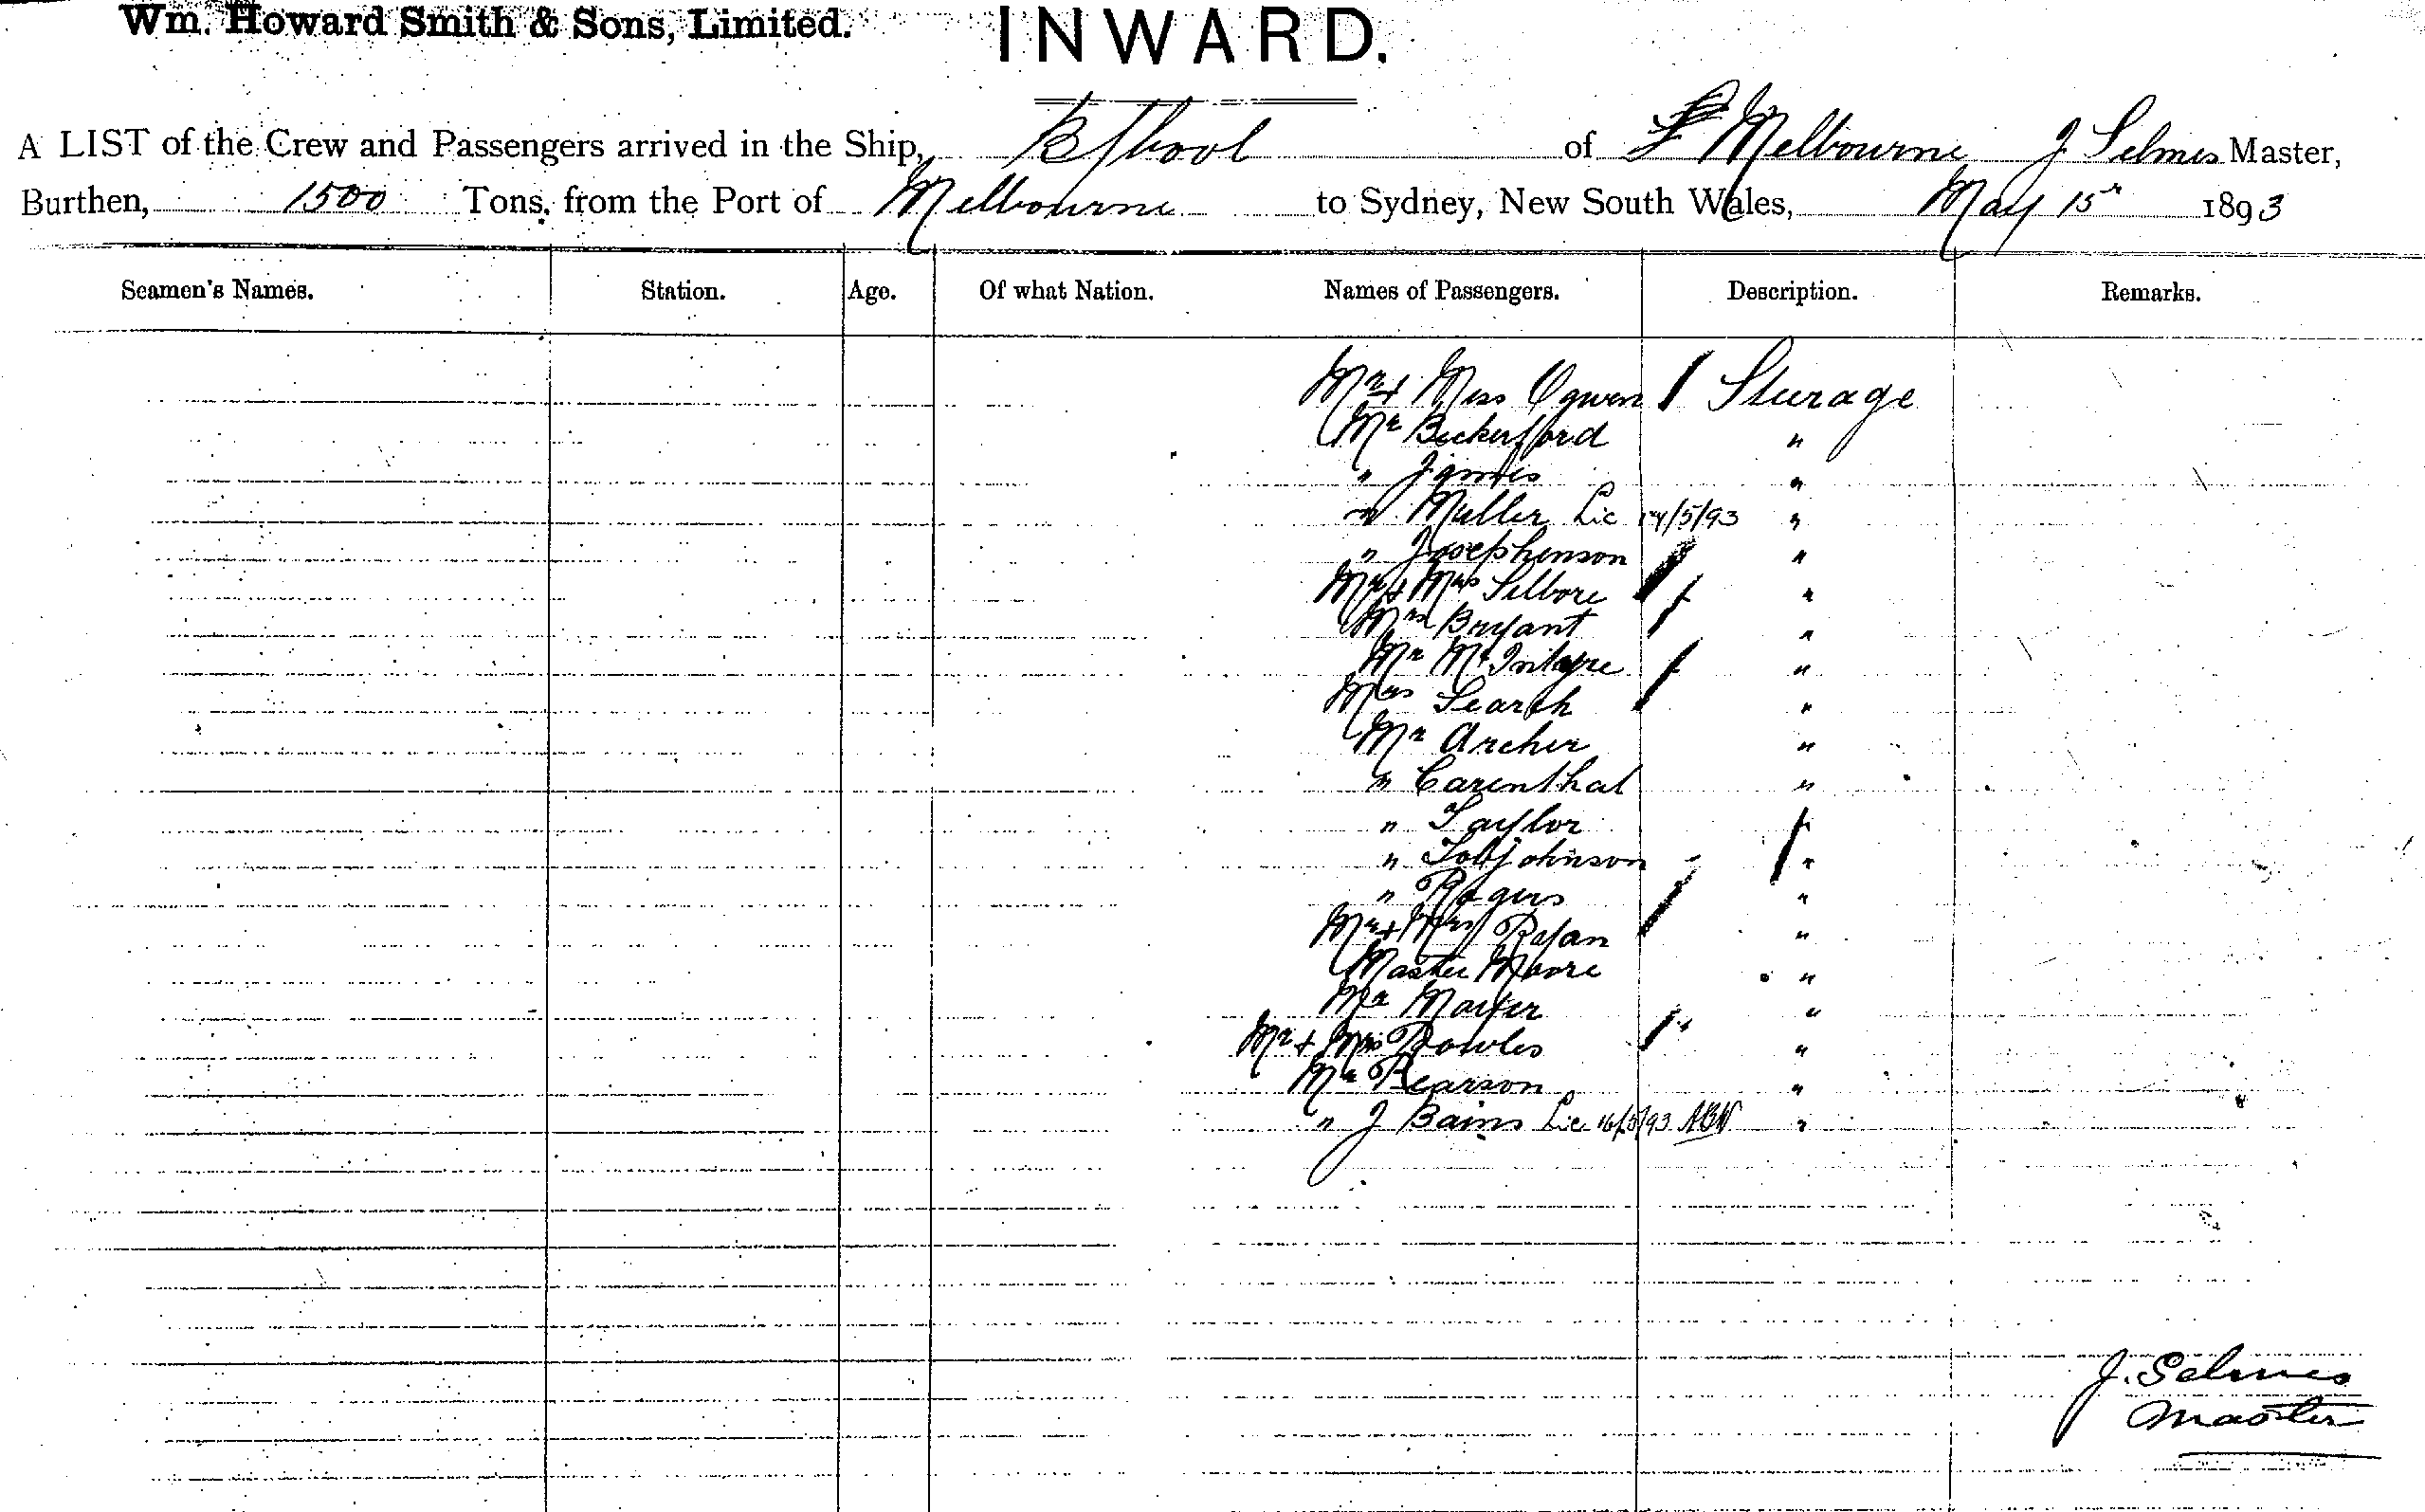 Wm. Howard Smith & Sons, Limited.
INWARD.
A LIST of the Crew and Passengers arrived in the Ship, B/pool of Melbourne J Selmes Master,
Burthen, 1500 Tons, from the Port of Melbourne to Sydney, New South Wales, May 15th 1893
Seamen's Names. Station. Age. Of what Nation. Names of Passengers. Description. Remarks.
Mr + Miss Ogwen Sturage
Mr Bickerfford "
" James "
" Muller Lic 14/5/93 "
" Josephenson "
Mr + Mrs Silbore "
Mrs Bryant "
Mr McIntyre "
Mrs Search "
Mr Archer "
" Carenthal "
" Taylor
" Johnson "
" Rogers "
Mr + Mrs Ryan "
Master Moore "
Mr Marker "
Mr + Mrs Powles "
Mr Pearson "
" J Bains Lic 16/5/93 "
J. Selmes
Master